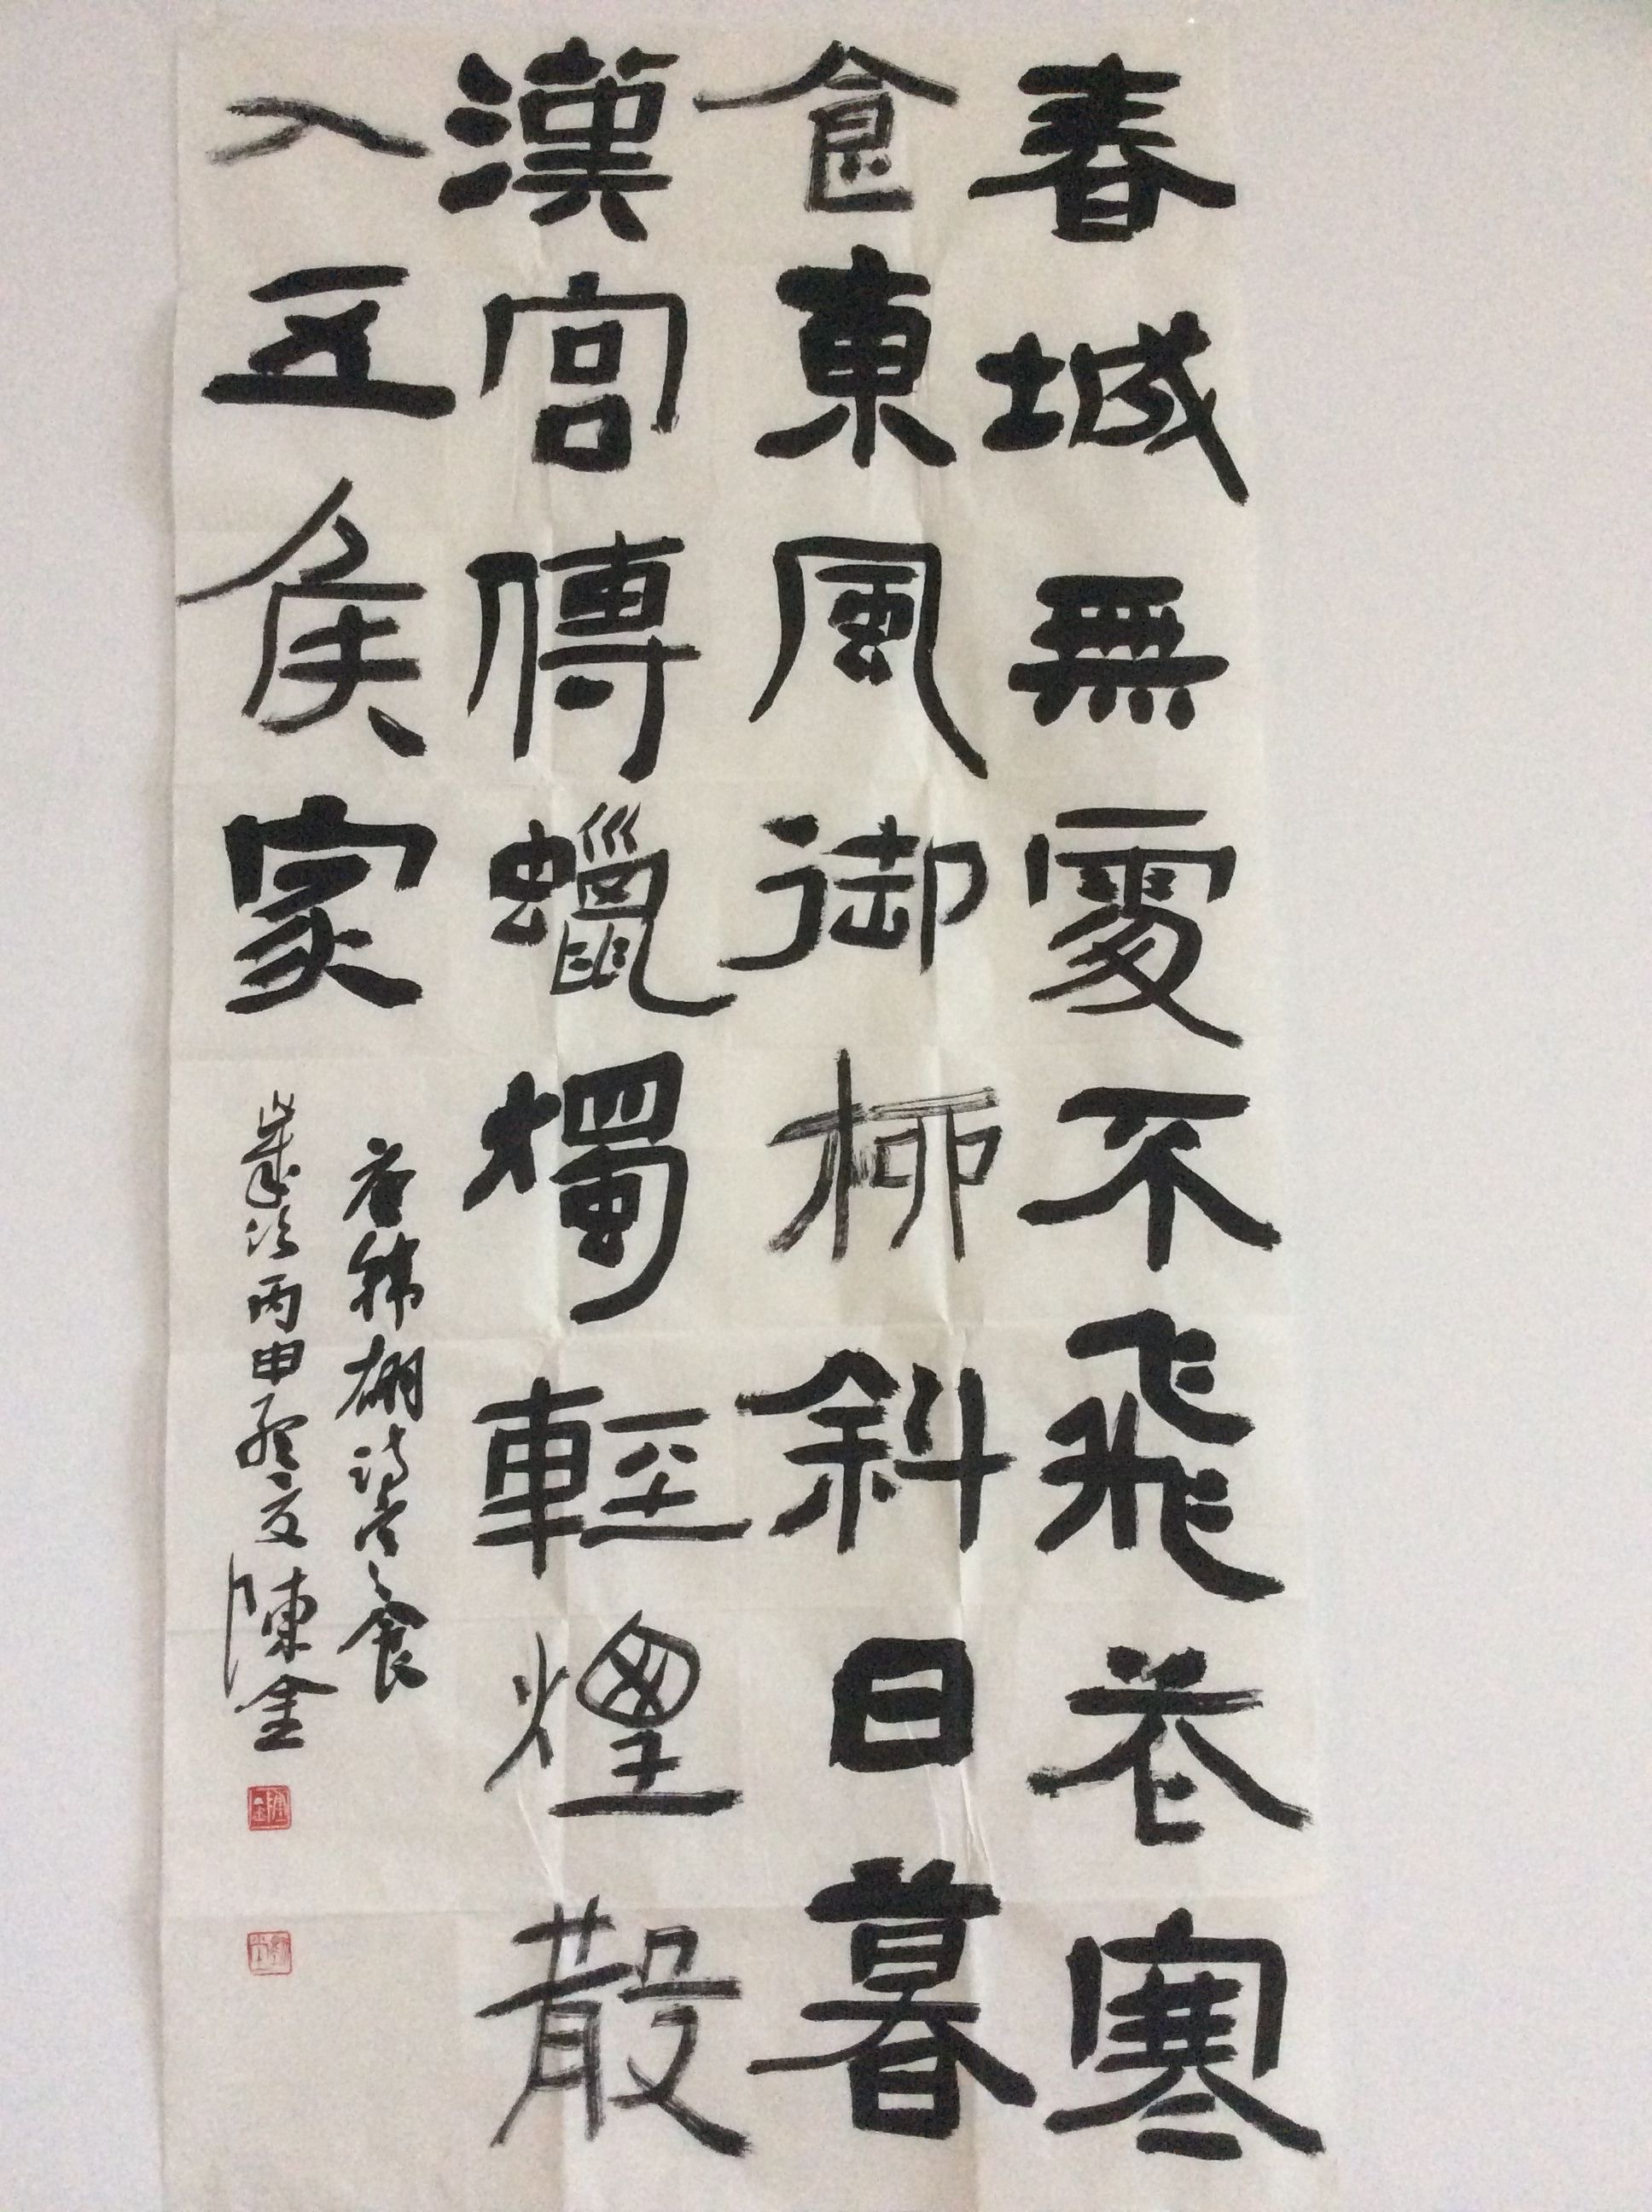 春城無處不飛花寒
食東風御柳斜日暮
漢宮傳蠟燭輕煙散
入五侯家
唐韓翃詩寒食
歲次丙申孟夏陳金